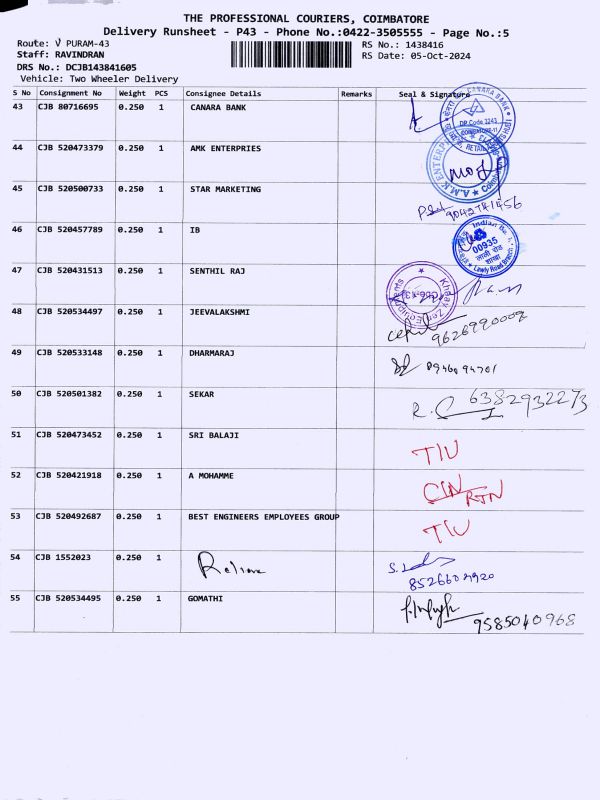 THE PROFESSIONAL COURIERS, COIMBATORE
Delivery Runsheet - P43 - Phone No.:0422-3505555 - Page No.:5
Route: V PURAM-43
RS No.: 1438416
Staff: RAVINDRAN
RS Date: 05-Oct-2024
DRS No.: DCJB143841605
Vehicle: Two Wheeler Delivery
S No Consignment No Weight PCS Consignee Details Remarks Seal & Signature
43 CJB 80716695 0.250 1 CANARA BANK
44 CJB 520473379 0.250 1 AMK ENTERPRIES
45 CJB 520500733 0.250 1 STAR MARKETING
46 CJB 520457789 0.250 1 IB 00935
47 CJB 520431513 0.250 1 SENTHIL RAJ
48 CJB 520534497 0.250 1 JEEVALAKSHMI 9626990009
49 CJB 520533148 0.250 1 DHARMARAJ
50 CJB 520501382 0.250 1 SEKAR 6382932273
51 CJB 520473452 0.250 1 SRI BALAJI TIU
52 CJB 520421918 0.250 1 A MOHAMME CIN RTN
53 CJB 520492687 0.250 1 BEST ENGINEERS EMPLOYEES GROUP TIU
54 CJB 1552023 0.250 1
55 CJB 520534495 0.250 1 GOMATHI 9585040968